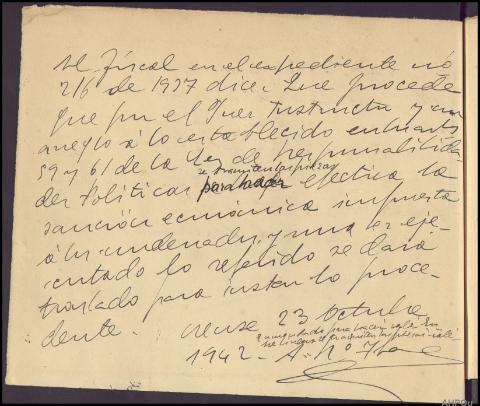 El Fiscal en el expediente nº
216 de 1937 dice: Que procede
que por el Juez Instructor y con
arreglo á lo establecido en los arts
59 y 61 de la Ley de responsabilida-
des Politicas se tramiten las piezas
para hacer efectiva la
sanción económica impuesta
á los condenados, y una vez eje-
cutado lo referido se dará
traslado para instar lo proce-
dente.
Orense 23 Octubre
1942 -
AHPOu